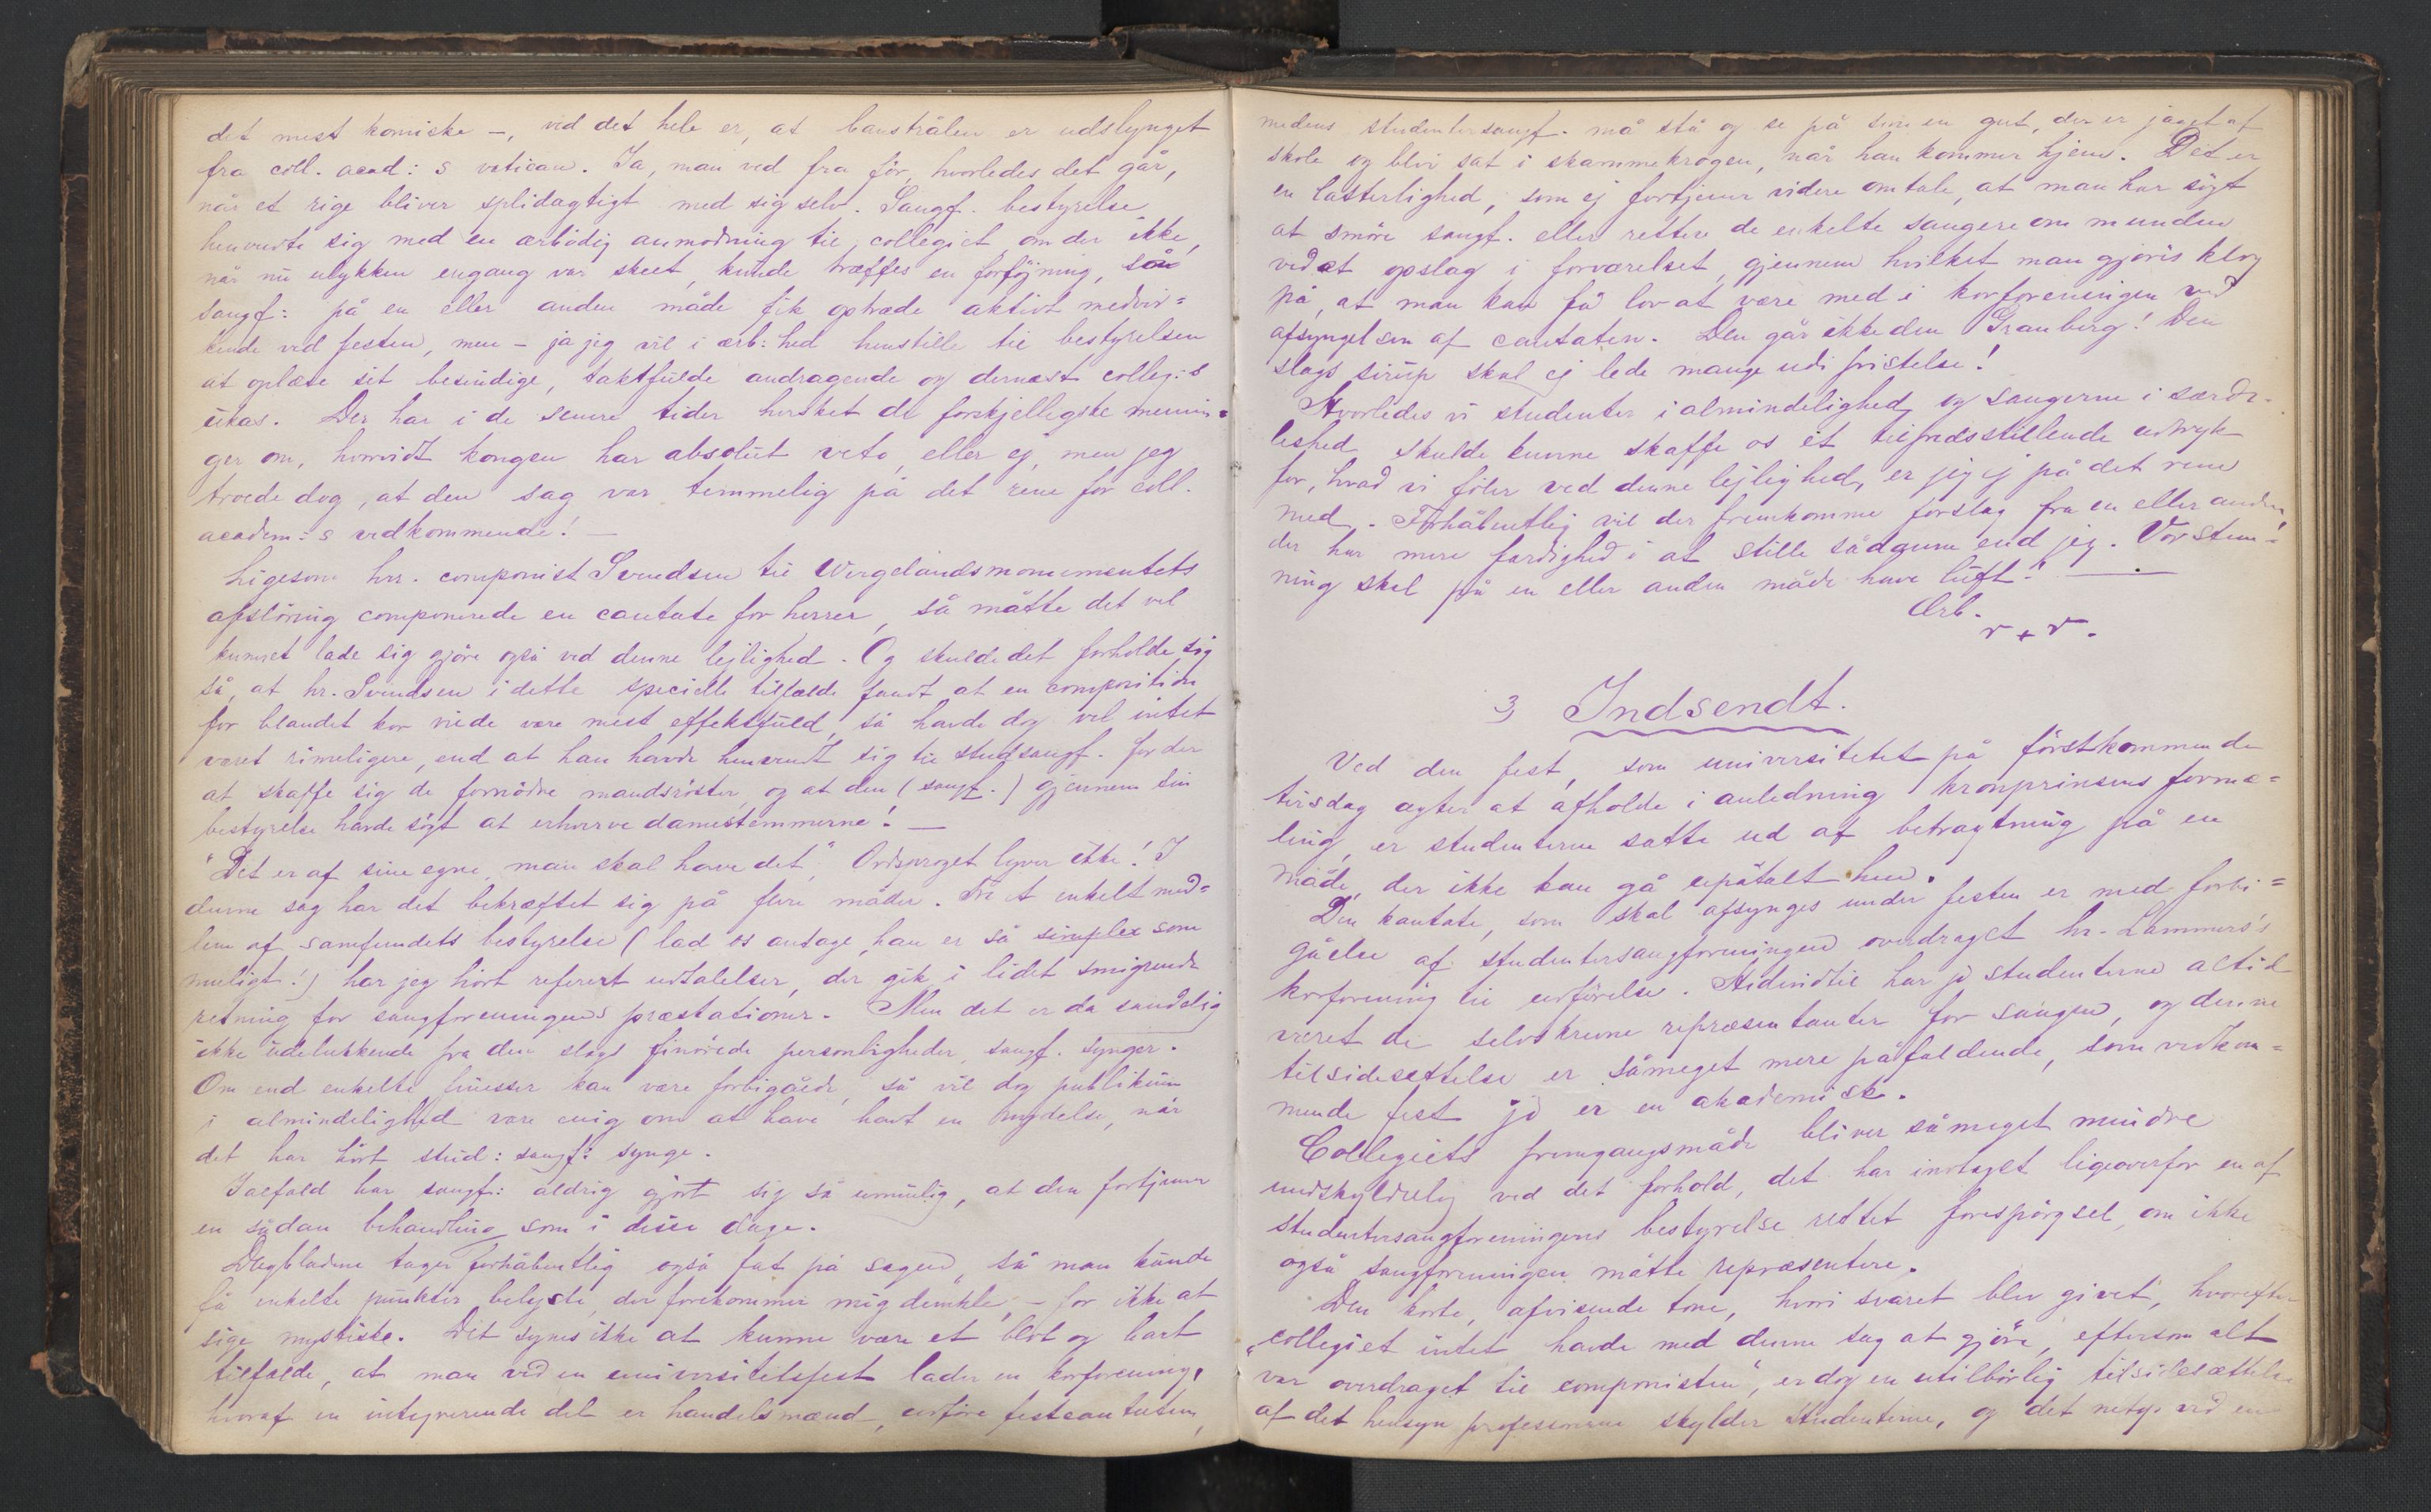 det mest komiske –, ved det hele er, at banstrålen er udslynget
fra coll. acad: s vatican. Ja, man ved fra för, hvorledes det går,
når et rige bliver splidagtigt med sig selv. Sangf. bestyrelse
henvendte sig med en ærbödig anmodning til collegiet, om der ikke,
når nu ulykken engang var skeet, kunde træffes en forföjning, så
sangf: på en eller anden måde fik optræde aktivt medvir=
kende ved festen, men – ja jeg vil i ærb:hed henstille til bestyrelsen
at oplæse sit besindige, taktfulde andragende og dernæst colleg:s
ukas. Der har i de senere tider hersket de forskjelligste menin=
ger om, hvorvidt kongen har absolut veto, eller ej, men jeg
troede dog, at den sag var temmelig på det rene for coll.
academ:s vedkommende! –
Ligesom hrr. componist Svendsen til Wergelandsmonumentets
afslöring componerede en cantate for herrer, så måtte det vel
kunnet lade sig gjöre også ved denne lejlighed. Og skulde det forholde sig
så, at hr. Svendsen i dette specielle tilfælde fandt at en composition
for blandet kor vilde være mest effektfuld, så havde dog vel intet
været rimeligere, end at han havde henvendt sig til studsangf. for der
at skaffe sig de fornödne mandsröster, og at den (sangf.) gjennem sin
bestyrelse havde sögt at erhverve damestemmerne! –
"Det er af sine egne, man skal have det", Ordsproget lyver ikke! I
denne sag har det bekræftet sig på flere måder. Fra et enkelt med=
lem af samfundets bestyrelse (lad os antage, han er så simplex som
muligt!) har jeg hört refereret udtalelser, der gik i lidet smigrende
retning for sangforeningens præstationer. Men det er da sandelig
ikke udelukkende for den slags finörede personligheder, sangf. synger.
Om end enkelte finesser kan være forbigåede, så vil dog publikum
i almindelighed være enig om at have havt en nydelse, når
det har hört stud: sangf: synge.
Ialfald har sangf: aldrig gjort sig så umulig, at den fortjener
en sådan behandling som i disse dage.
Dagbladene tager forhåbentlig også fat på sagen, så man kunde
få enkelte punkter belyste, der forekommer mig dunkle, – for ikke at
sige mystiske. Det synes ikke at kunne være et blot og bart
tilfælde, at man ved en universitetsfest lader en korforening,
hvoraf en integrerende del er handelsmænd, udföre festcantaten,
medens studentersangf. må stå og se på som en gut, der er jaget af
skole og blir sat i skammekrogen, når han kommer hjem. Det er
en latterlighed, som ej fortjener videre omtale, at man har sögt
at smöre sangf. eller rettere de enkelte sangere om munden
ved et opslag i forværelset, gjennem hvilket man gjöres klog
på, at man kan få lov at være med i korforeningen ved
afsyngelsen af cantaten. Den går ikke den Granberg! Den
slags sirup skal ej lede mange udi fristelse!
Hvorledes vi studenter i almindelighed og sangerne i særde-
leshed skulde kunne skaffe os et tilfredsstillende udtryk
for, hvad vi föler ved denne lejlighed, er jeg ej på det rene
med. Forhåbentlig vil der fremkomme forslag fra en eller anden,
der har mere færdighed i at stille sådanne end jeg. Vor stem=
ning skal på en eller anden måde have luft! –
Ærb.
r + r.
3) Indsendt.
Ved den fest, som universitetet på förstkommende
tirsdag agter at afholde i anledning kronprinsens formæ=
ling, er studenterne satte ud af betragtning på en
måde, der ikke kan gå upåtalt hen.
Den kantate, som skal afsynges under festen er med forbi=
gåelse af studentersangforeningen overdraget hr. Lammers's
korforening til udförelse. Hidindtil har jo studenterne altid
været de selvskrevne repræsentanter for sangen, og denne
tilsidesættelse er såmeget mere påfaldende, som vedkom=
mende fest jo er en akademisk.
Collegiets fremgangsmåde bliver såmeget mindre
undskyldelig ved det forhold, det har indtaget ligeoverfor en af
studentersangforeningens bestyrelse rettet forespörgsel, om ikke
også sangforeningen måtte repræsentere.
Den korte, afvisende tone, hvori svaret blev givet, hvorefter
"collegiet intet havde med denne sag at gjöre, eftersom alt
var overdraget til componisten", er dog en utilbörlig tilsidesættelse
af det hensyn professorerne skylder studenterne, og det netop ved en